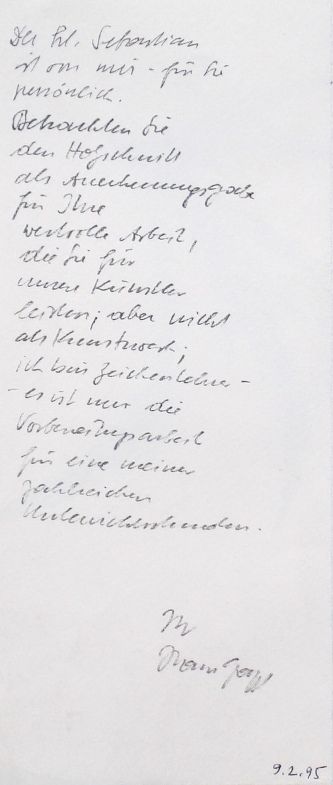 Der hl. Sebastian
ist von mir – für Sie
persönlich.
Betrachten Sie
den Holzschnitt
als Anerkennungsgabe
für Ihre
wertvolle Arbeit,
die Sie für
unsere Künstler
leisten; aber nicht
als Kunstwerk;
ich bin Zeichenlehrer –
– es ist nur die
Vorbereitungsarbeit
für eine meiner
zahlreichen
Unterrichtsstunden.
Ihr
9.2.95